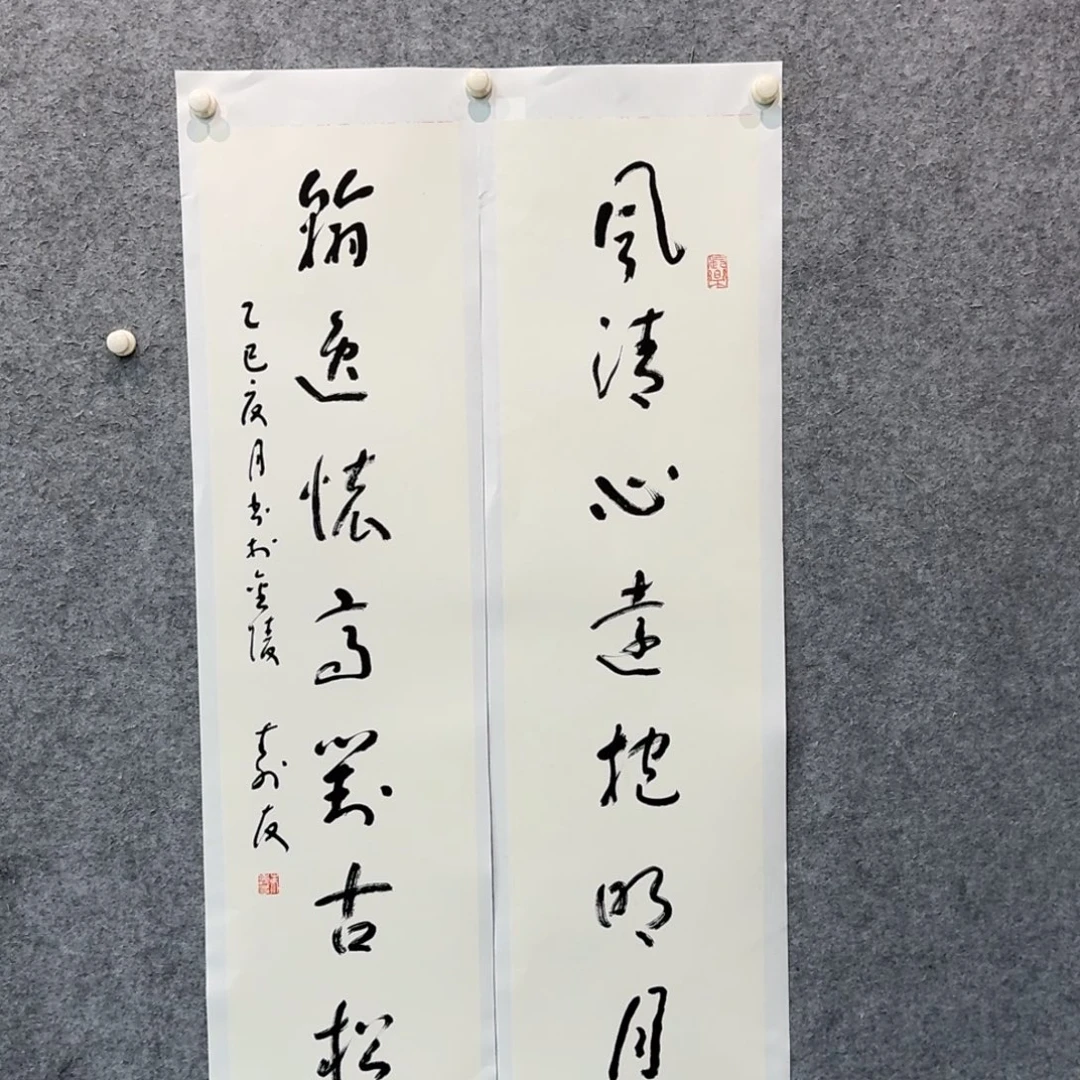 風清心遠抱明月
翰逸懷高對古松
乙巳夏月书於金陵
友